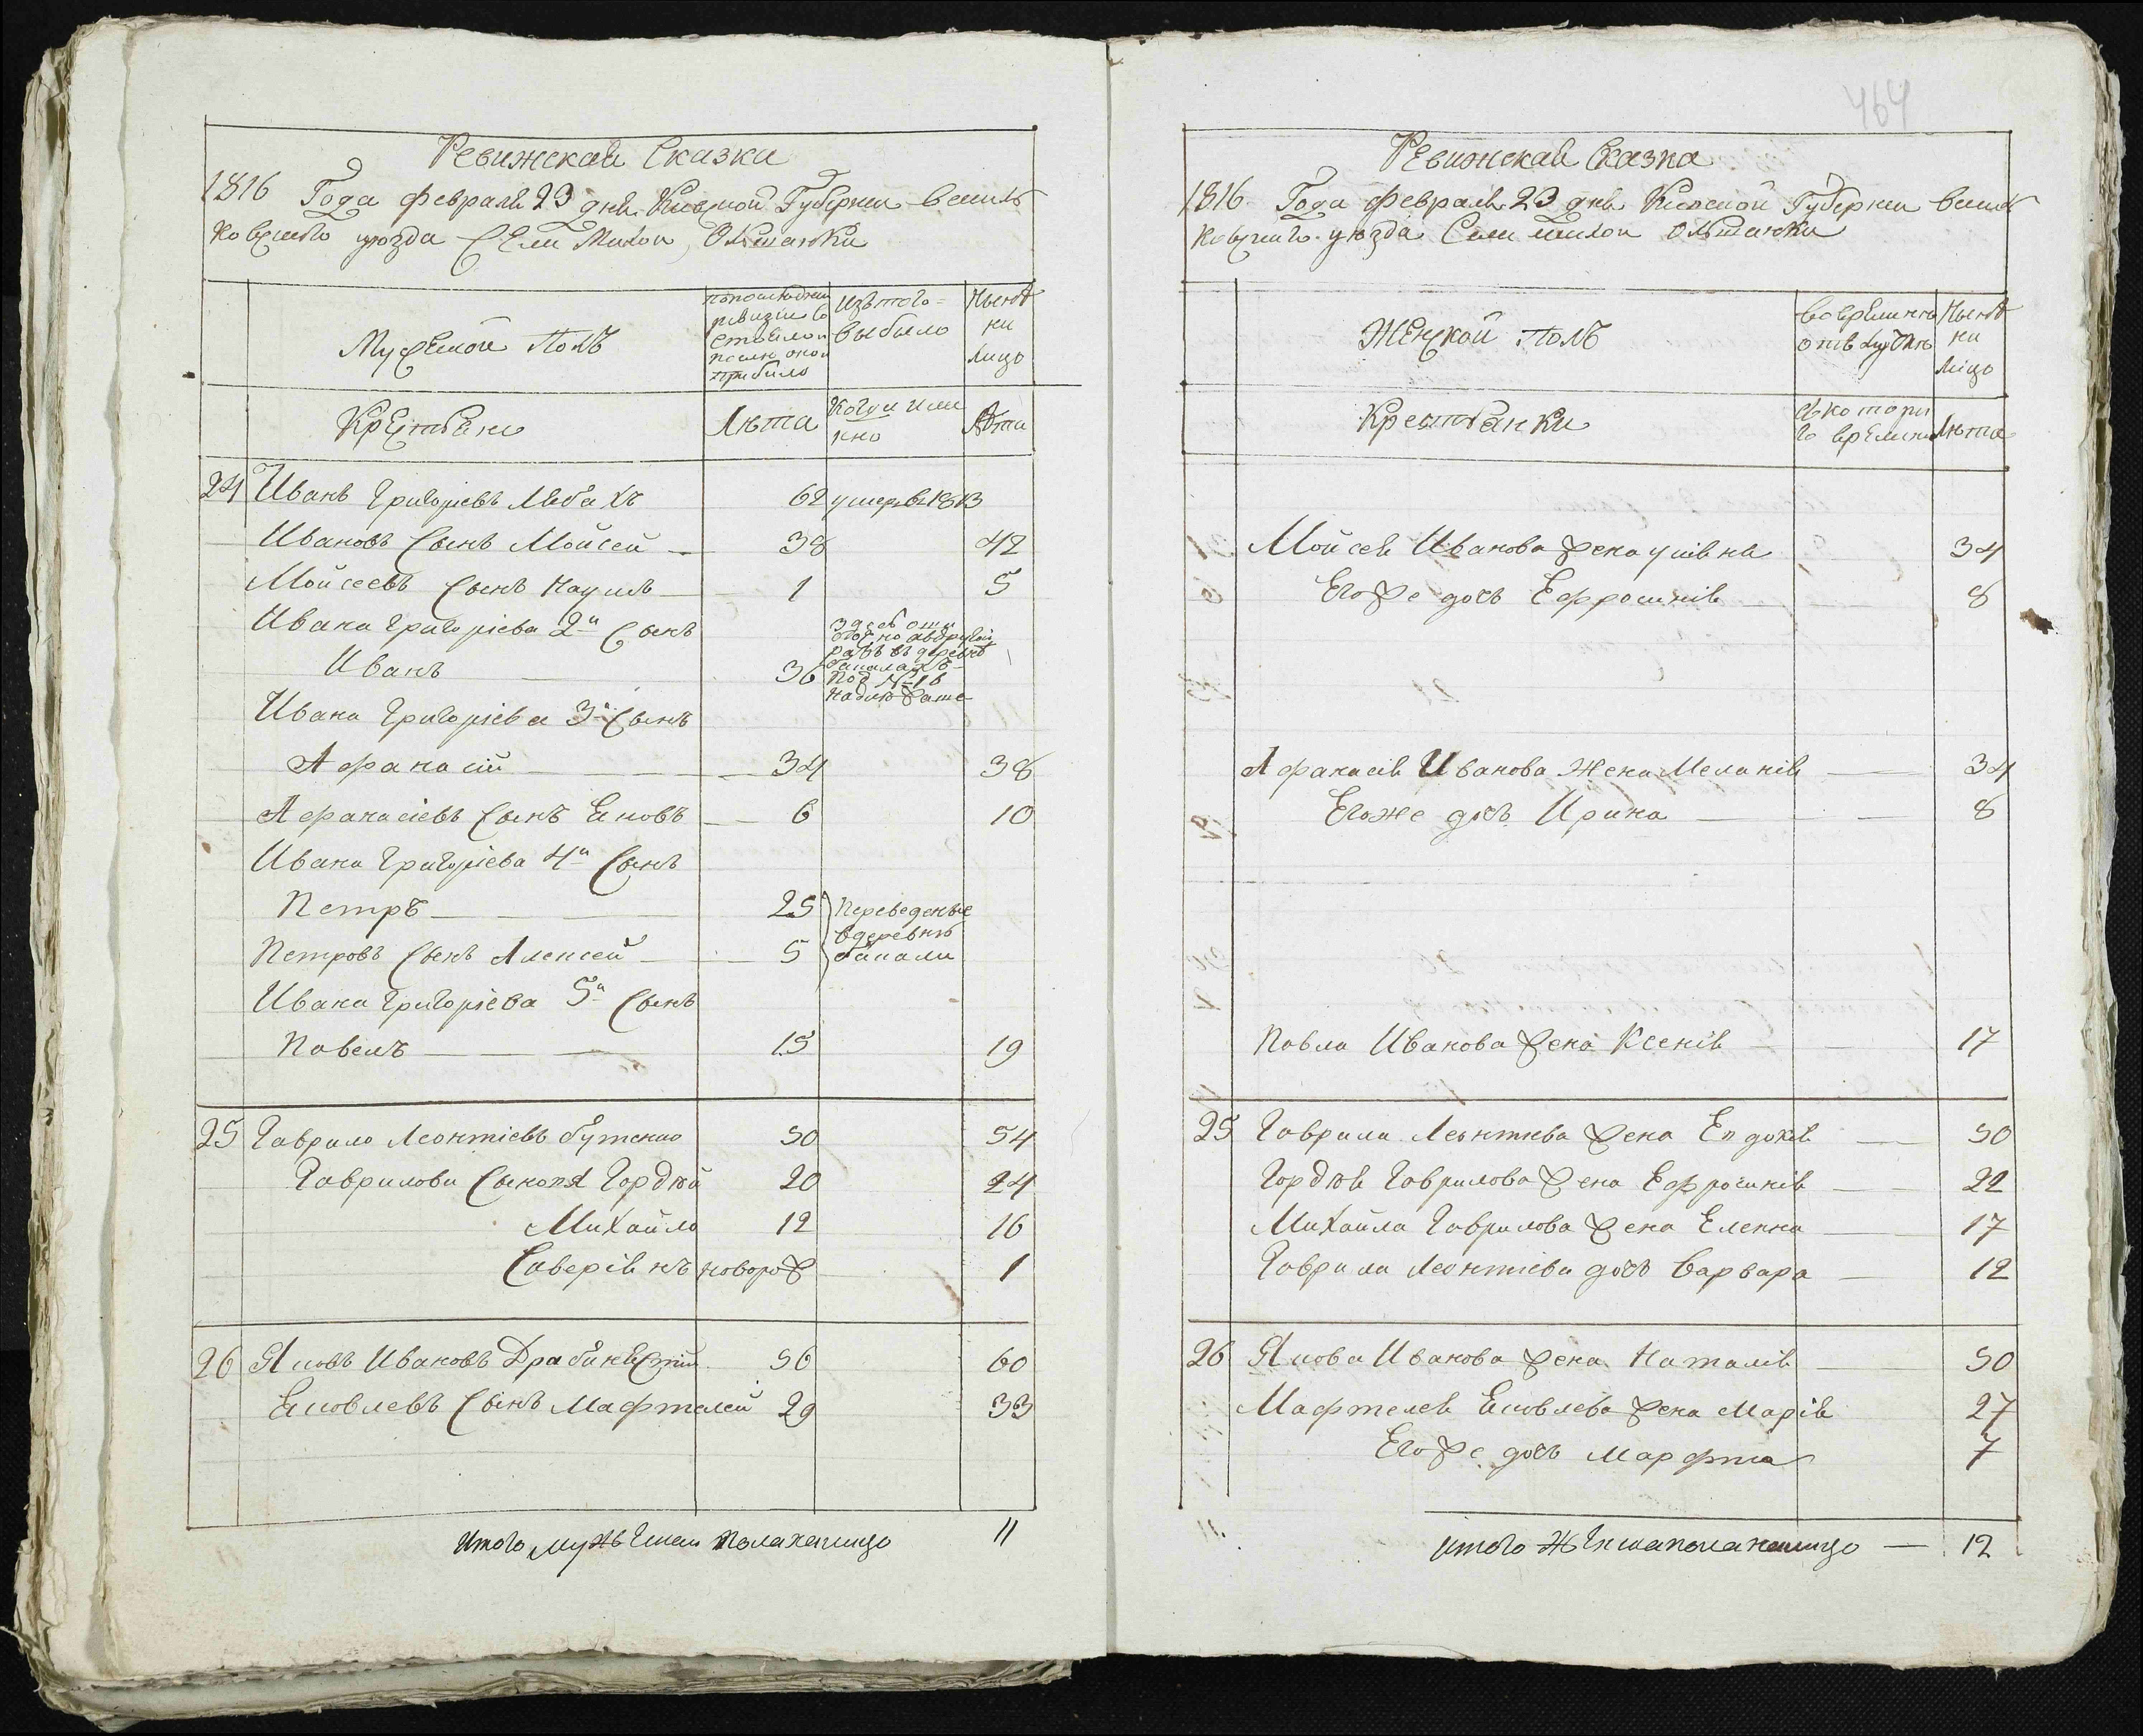 Ревижская Сказка
1816 Года февраля 29 дня Киевской Губернии Василь
ковскаго уезда Села Малой Ольшанки
Мужеской Полъ
по последней
ревизии со
стояло и
после оной
прибыло
Изъ того
выбыло
Ныне
на
лицо
Крестьяне
Лѣта
Когда имен
но
Лѣта
24 Иванъ Григориевъ 62 умеръ в 1813
Ивановъ Сынъ Мойсей 38 42
Мойсеевъ Сынъ Наумъ 1 5
Ивана Григориева 2й Сынъ
Иванъ 36
Ивана Григориева 3й Сынъ
Афанасий 34 38
Афанасиевъ Сынъ Яковъ 6 10
Ивана Григориева 4й Сынъ
Петръ 25 Переведены
в деревню
Петровъ Сынъ Алексей 5
Ивана Григориева 5й Сынъ
Павелъ 15 19
25 Гаврило Леонтиевъ Бутенко 50 54
Гавриловы Сыновя Гордѣй 20 24
Михайло 12 16
Саверіянъ оворож 1
26 Яковъ Ивановъ 56 60
Яковлевъ Сынъ Мафтелей 29 33
Итого мужеска пола налицо 11
464
Ревижская Сказка
1816 Года февраля 29 дня Киевской Губернии Василь
ковскаго уезда Села Малой Ольшанки
Женской Полъ
во временной
отлучке
Ныне
на
лицо
Крестьянки
съ котора
го времени
Лѣта
Мойсея Иванова жена 34
Егоже дочь Ефросиния 8
Афанасия Иванова Жена Мелания 34
Егоже дочь Ирина 8
Павла Иванова жена Ксения 17
25 Гаврила Леонтиева жена Евдокия 50
Гордѣя Гаврилова жена Ефросиния 22
Михайла Гаврилова жена Еленна 17
Гаврила Леонтиева дочь Варвара 12
26 Якова Иванова жена Наталия 50
Мафтелея Яковлева жена Мария 27
Егоже дочь Марфта 7
Итого женска пола налицо 12